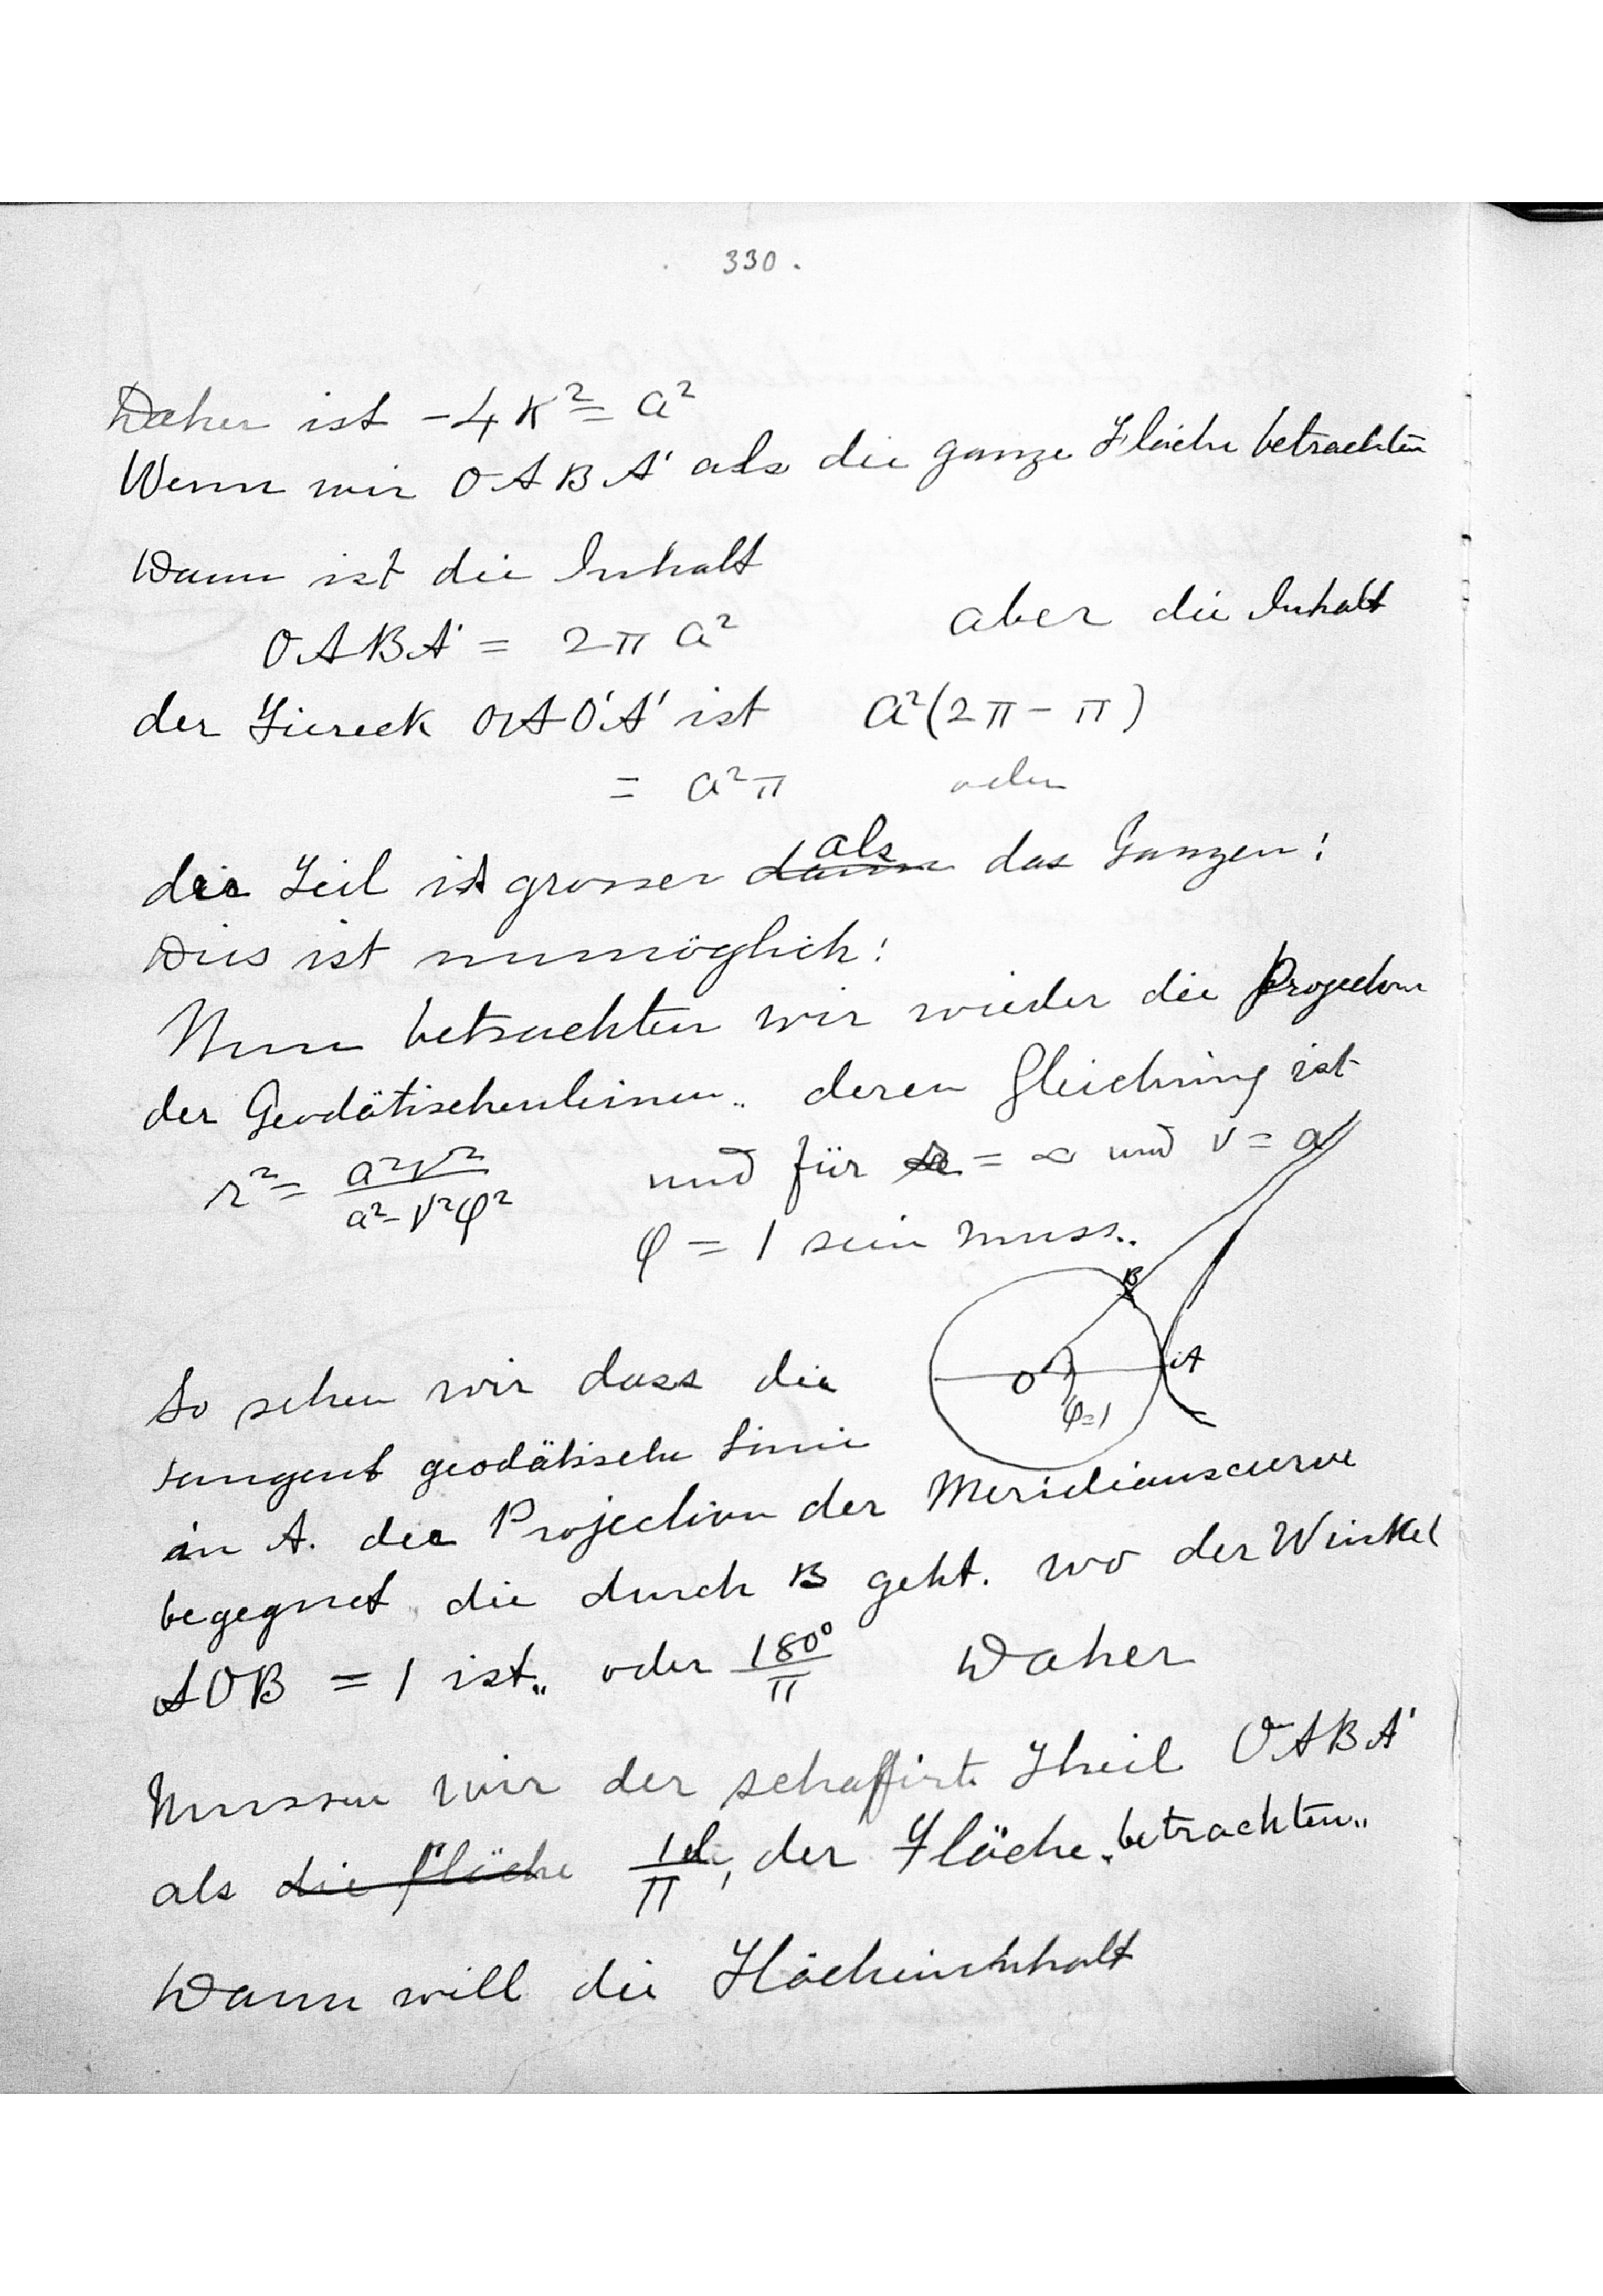 330.
Daher ist -4K² = a²
Wenn wir OABA' als die ganze Fläche betrachten
Dann ist die Inhalt
OABA' = 2π a² aber die Inhalt
der Viereck OAO'A' ist a²(2π - π)
= a²π oder
der Teil ist grosser dann als das Ganzen!
Dies ist unmöglich!
Nun betrachten wir wieder die Projection
der Geodätischenleinen. deren Gleichung ist
r² = a²v² / a² - v²φ² und für r = ∞ und v = a
φ = 1 sein muss..
B
O A
φ=1
So sehen wir dass die
tangent geodätische Linie
in A. der Projection der Meridianscurve
begegnet die durch B geht. wo der Winkel
AOB = 1 ist.. oder 180°/π Daher
Mussen wir der schaffirt Theil OABA'
als die fläche 1/π der Fläche betrachten..
Dann will die